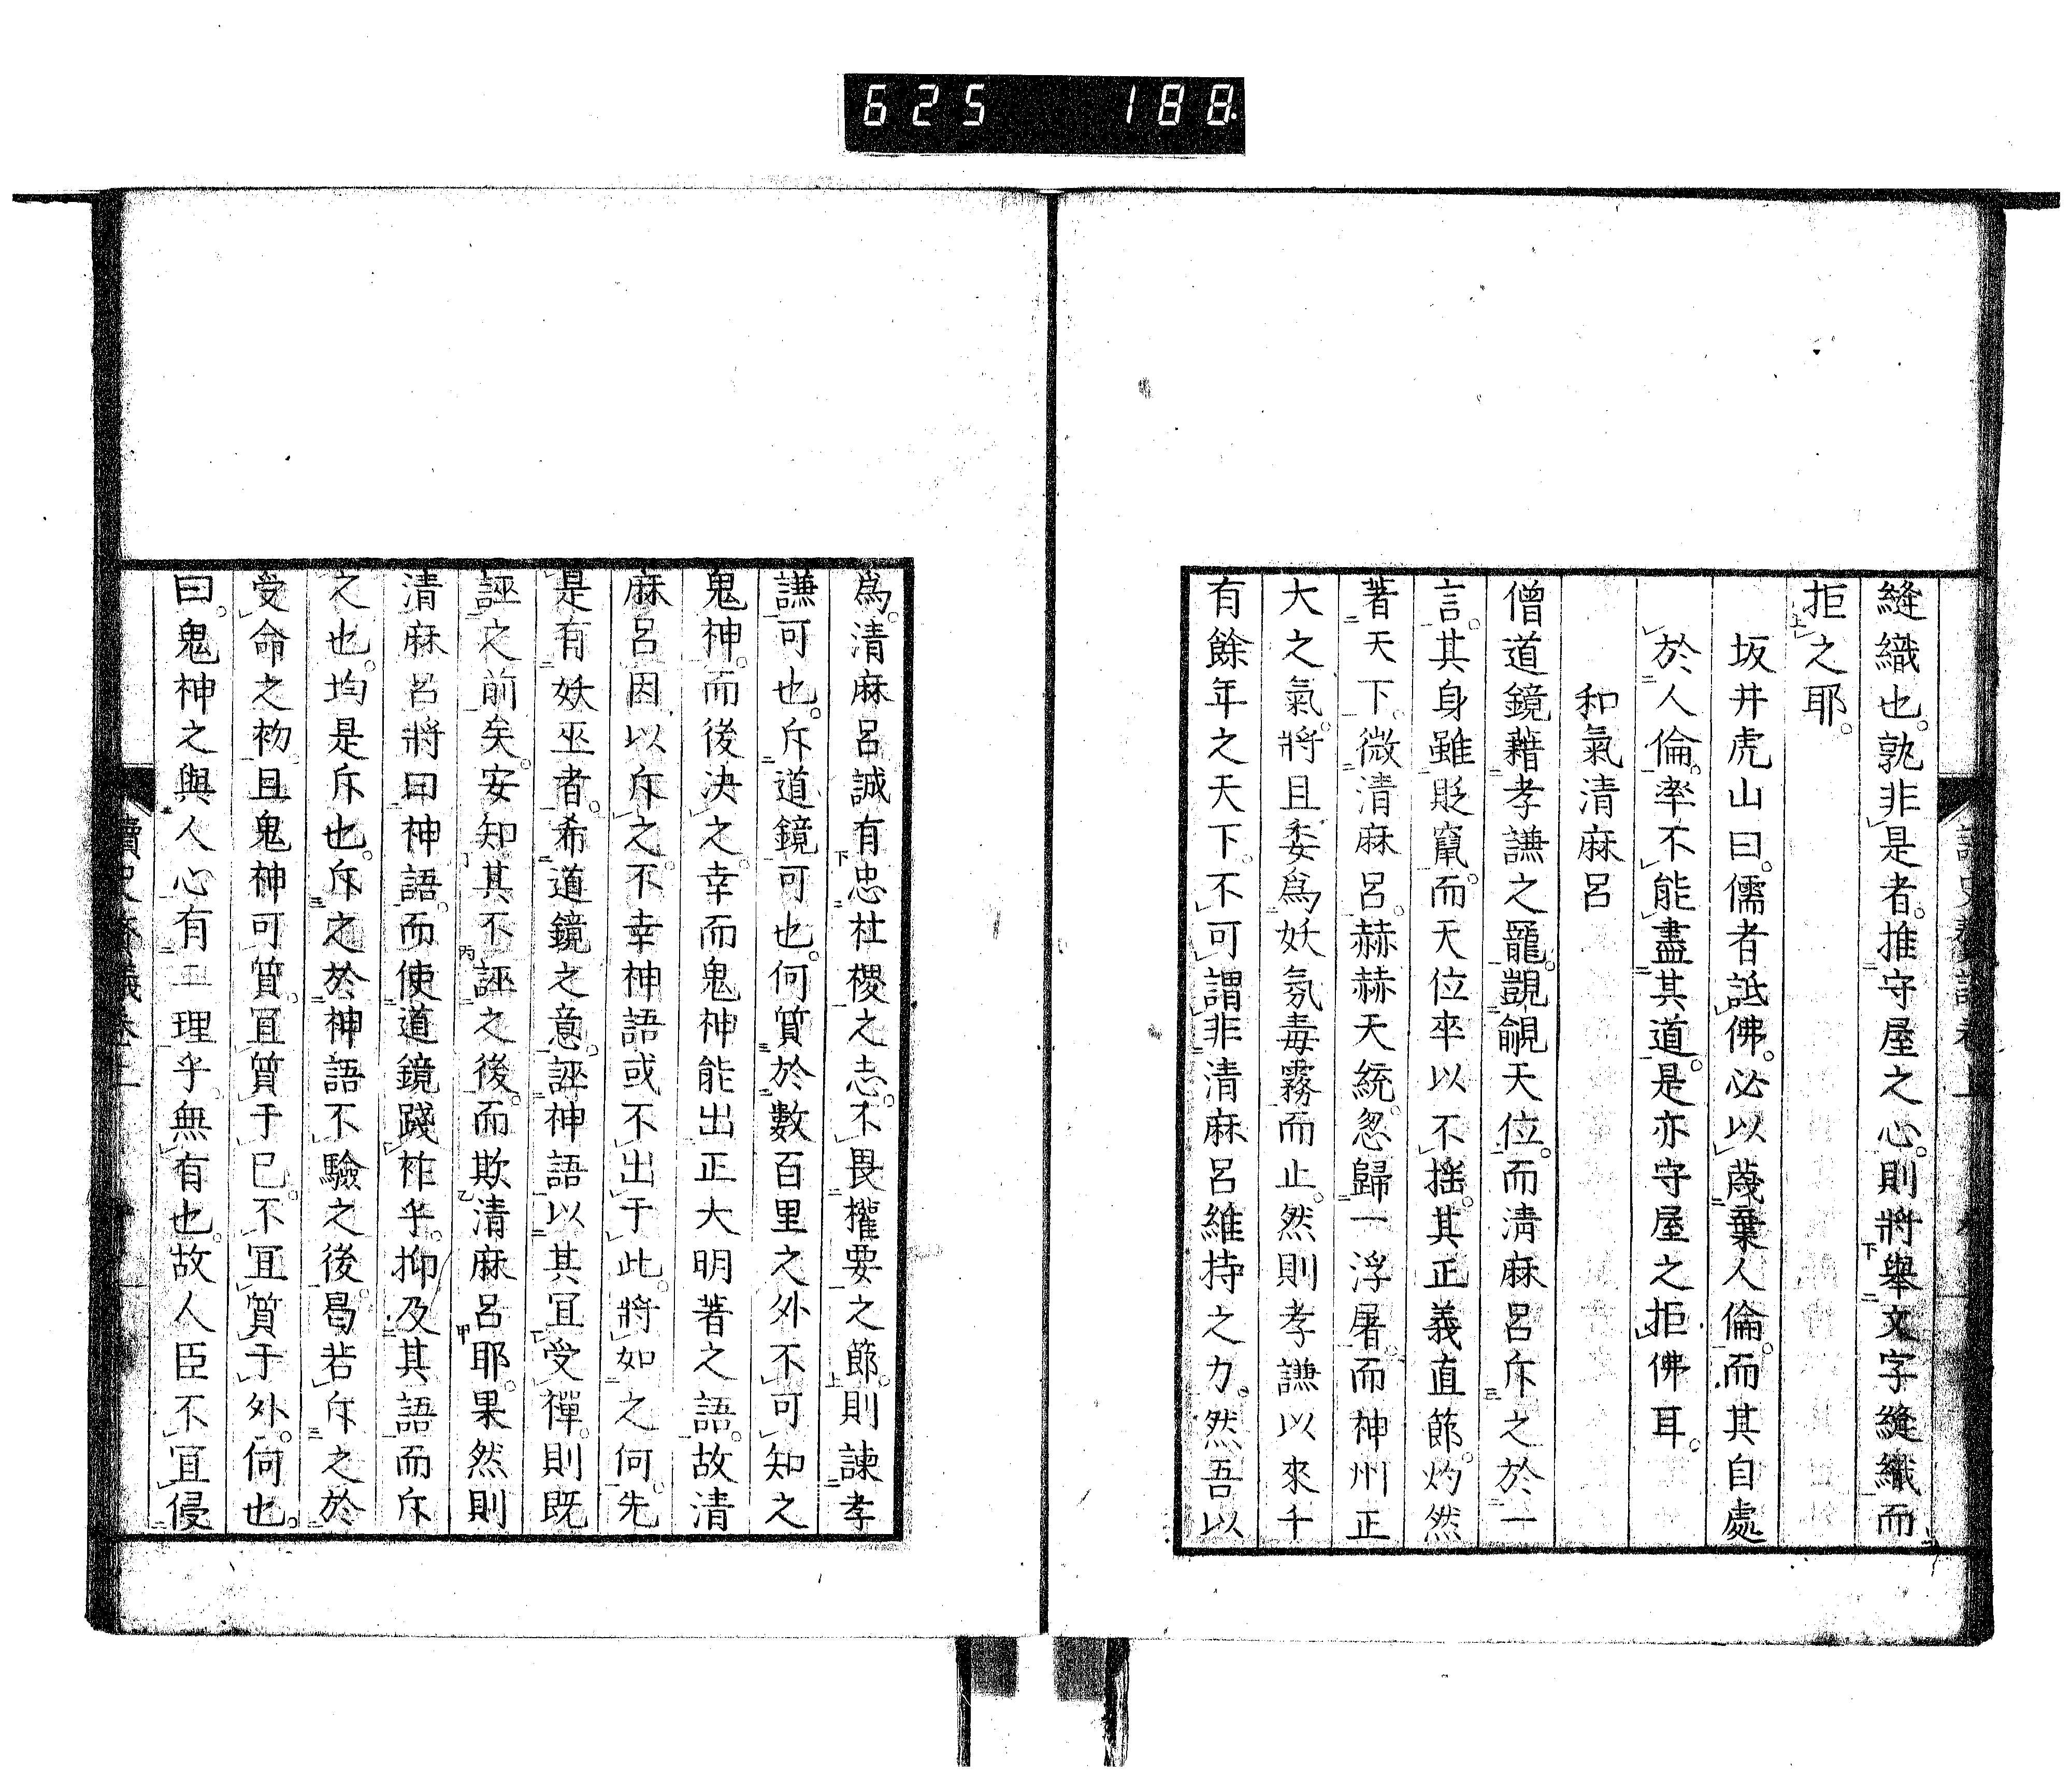 625 188
縫織也。孰非是者。推守屋之心。則將舉文字縫織而
拒之耶。
坂井虎山曰。儒者詆佛。必以蔑棄人倫。而其自處
於人倫。率不能盡其道。是亦守屋之拒佛耳。
和氣清麻呂
僧道鏡藉孝謙之寵。覬覦天位。而清麻呂斥之於一
言。其身雖貶竄。而天位卒以不搖。其正義直節。灼然
著天下。微清麻呂。赫赫天統。忽歸一浮屠。而神州正
大之氣。將且委爲妖氛毒霧而止。然則孝謙以來千
有餘年之天下。不可謂非清麻呂維持之力。然吾以
爲。清麻呂誠有忠社稷之志。不畏權要之節。則諫孝
謙可也。斥道鏡可也。何質於數百里之外不可知之
鬼神。而後決之。幸而鬼神能出正大明著之語。故清
麻呂因以斥之。不幸神語或不出于此。將如之何。先
是有妖巫者。希道鏡之意。誣神語以其宜受禪。則既
誣之前矣。安知其不誣之後。而欺清麻呂耶。果然則
清麻呂將曰神語。而使道鏡踐祚乎。抑及其語而斥
之也。均是斥也。斥之於神語不驗之後。曷若斥之於
受命之初。且鬼神可質。宜質于已。不宜質于外。何也。
曰。鬼神之與人心有二理乎。無有也。故人臣不宜侵
讀史贅議卷上